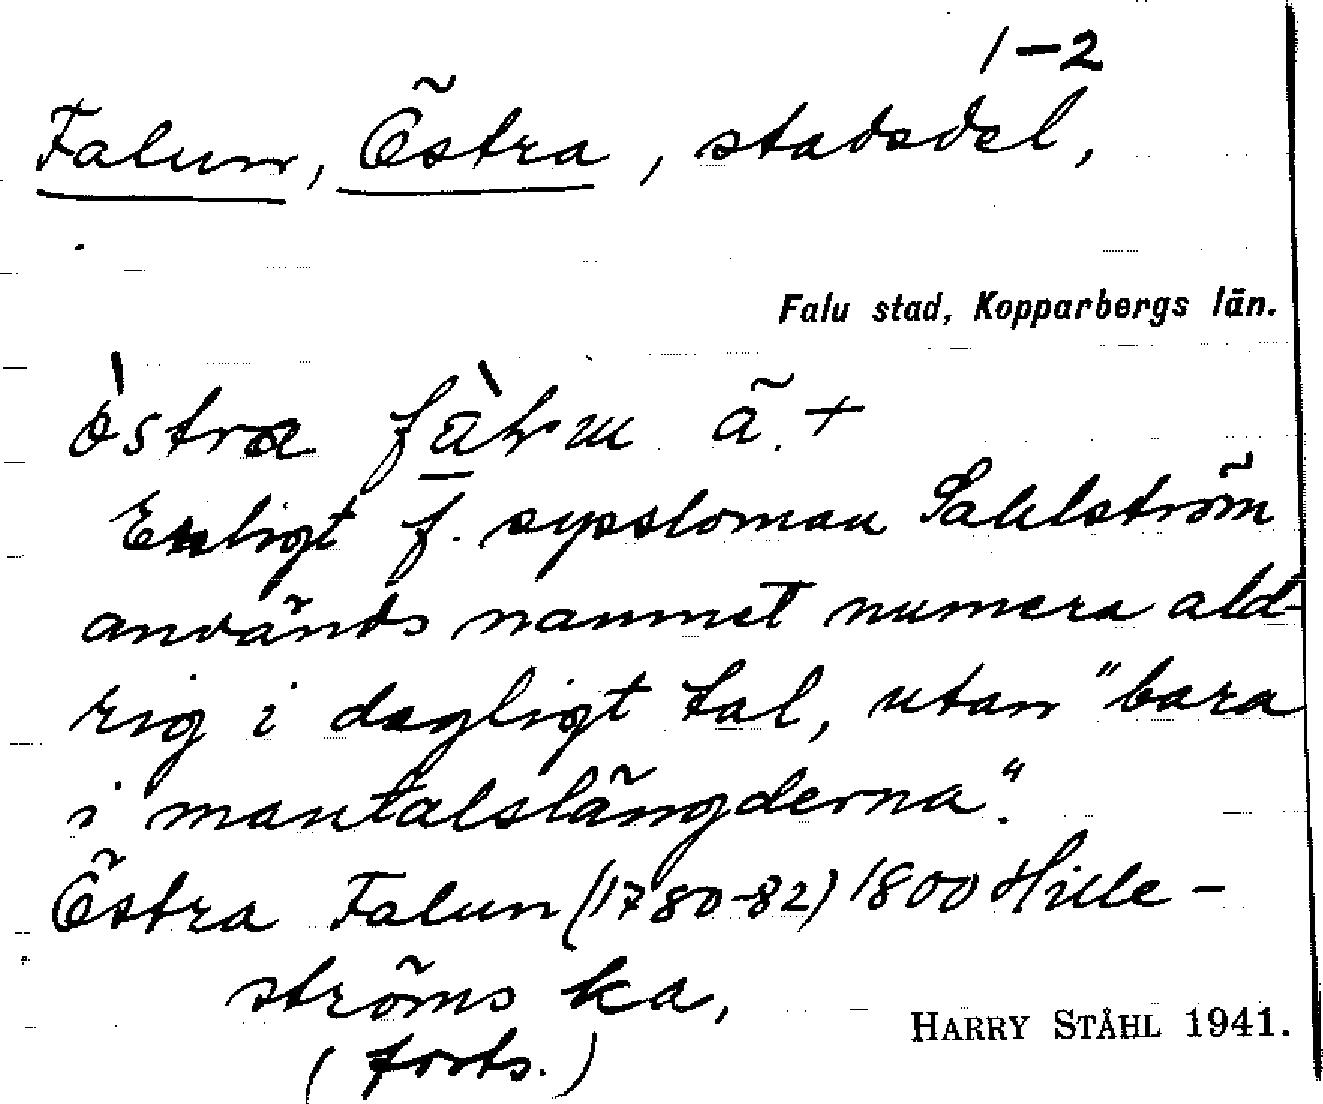 1-2
Falun, Östra, stadsdel,
Falu stad, Kopparbergs län.
östra ã.+
Enligt f. syssloman Sahlström
används namnet numera ald-
rig i dagligt tal, utan "bara
i mantalslängderna".
Östra Falun (1780-82) 1800 Hille-
ströms ka,
(forts.)
HARRY STÅHL 1941.